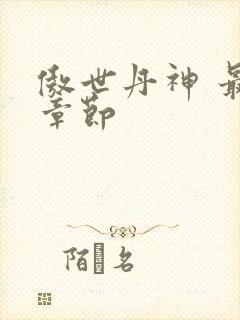 傲世丹神 最
章節
陌 名